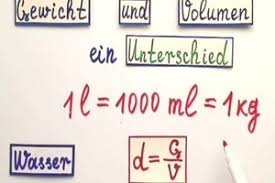 Gewicht und Volumen
ein Unterschied
1l = 1000 ml = 1kg
Wasser
d = G/V